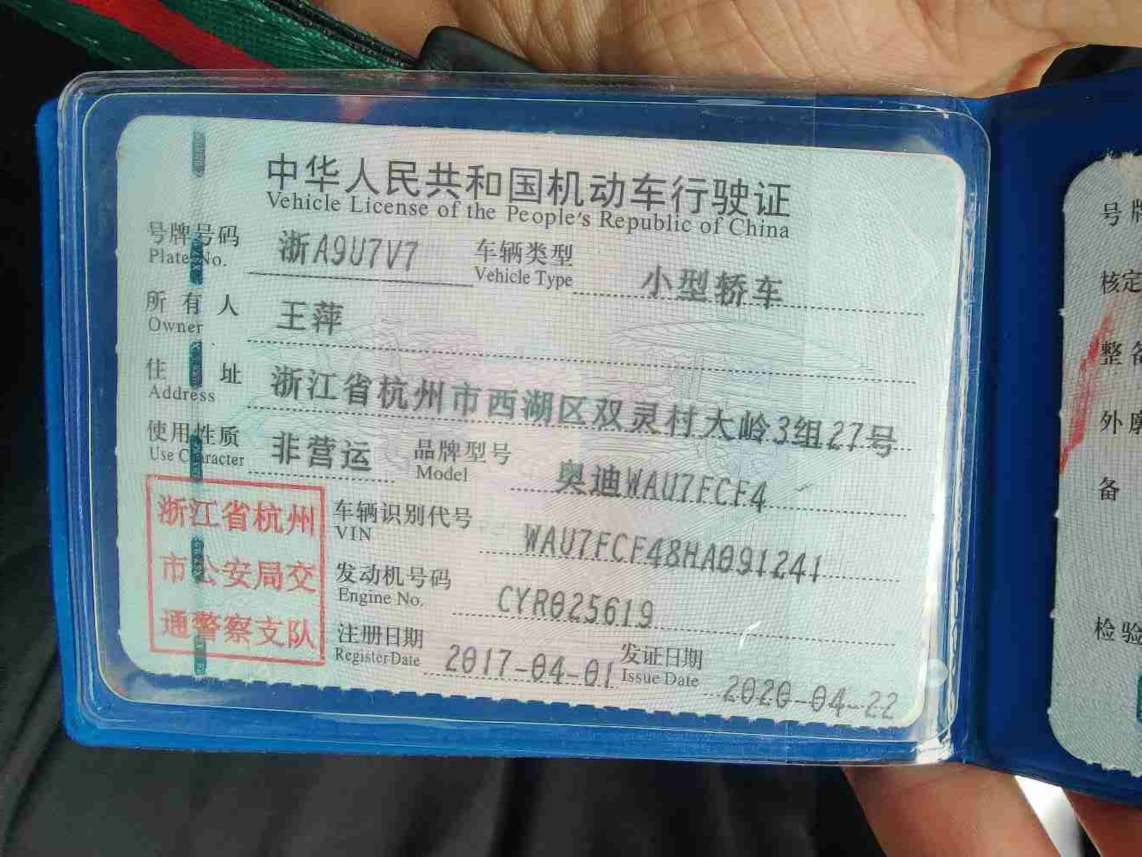 中华人民共和国机动车行驶证
Vehicle License of the People's Republic of China
号牌号码 浙A9U7V7 车辆类型 小型轿车
Plate No. Vehicle Type
所有人 王萍
Owner
住址 浙江省杭州市西湖区双灵村大岭3组27号
Address
使用性质 非营运 品牌型号 奥迪WAU7FCF4
Use Character Model
浙江省杭州
市公安局交
通警察支队
车辆识别代号 WAU7FCF48HA091241
VIN
发动机号码 CYR025619
Engine No.
注册日期 2017-04-01 发证日期 2020-04-22
Register Date Issue Date
号牌
核定
整备
外廓
备
检验